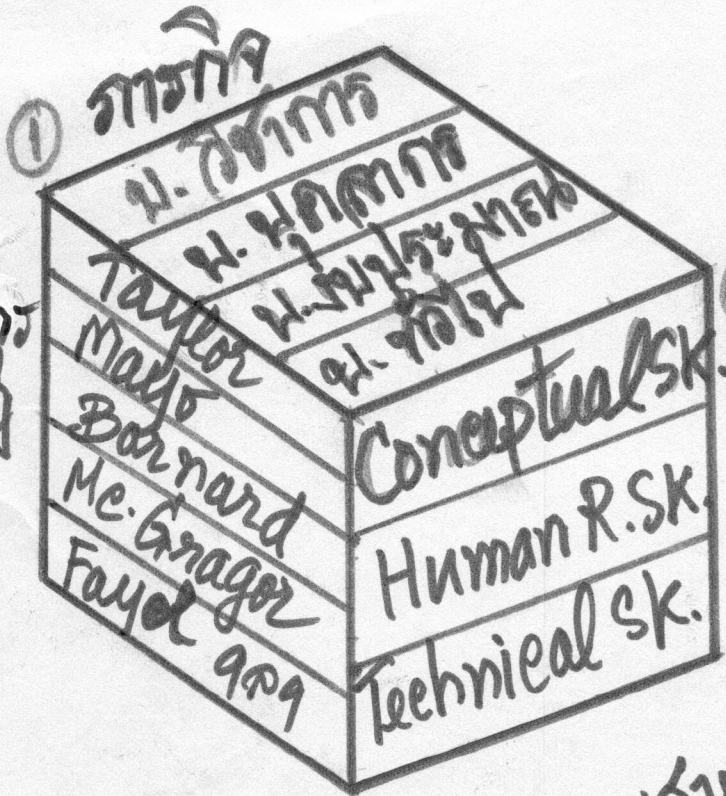 ① ภารกิจ
บ. วิชาการ
บ. บุคลากร
บ. งบประมาณ
บ. ทั่วไป
Taylor
Mayo
Barnard
Mc. Gragor
Fayol ฯลฯ
Conceptual SK.
Human R. SK.
Technical SK.